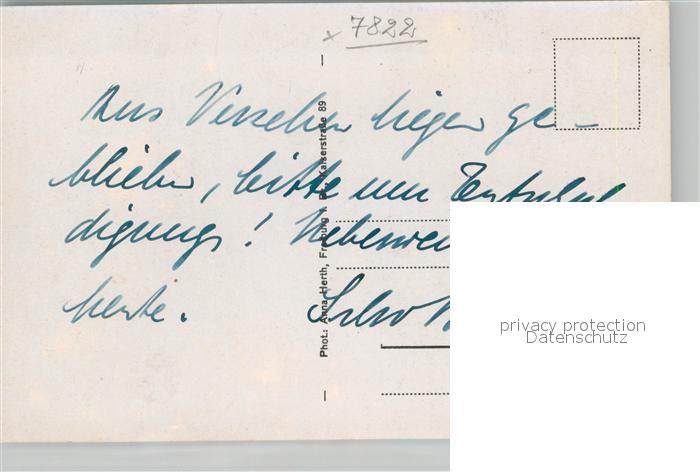 7822
Aus Versehen liegen ge-
blieben, bitte um Entschul
digung!
heute.
Phot.: Anna Herth, Freiburg i. Br., Kaiserstraße 89
privacy protection
Datenschutz